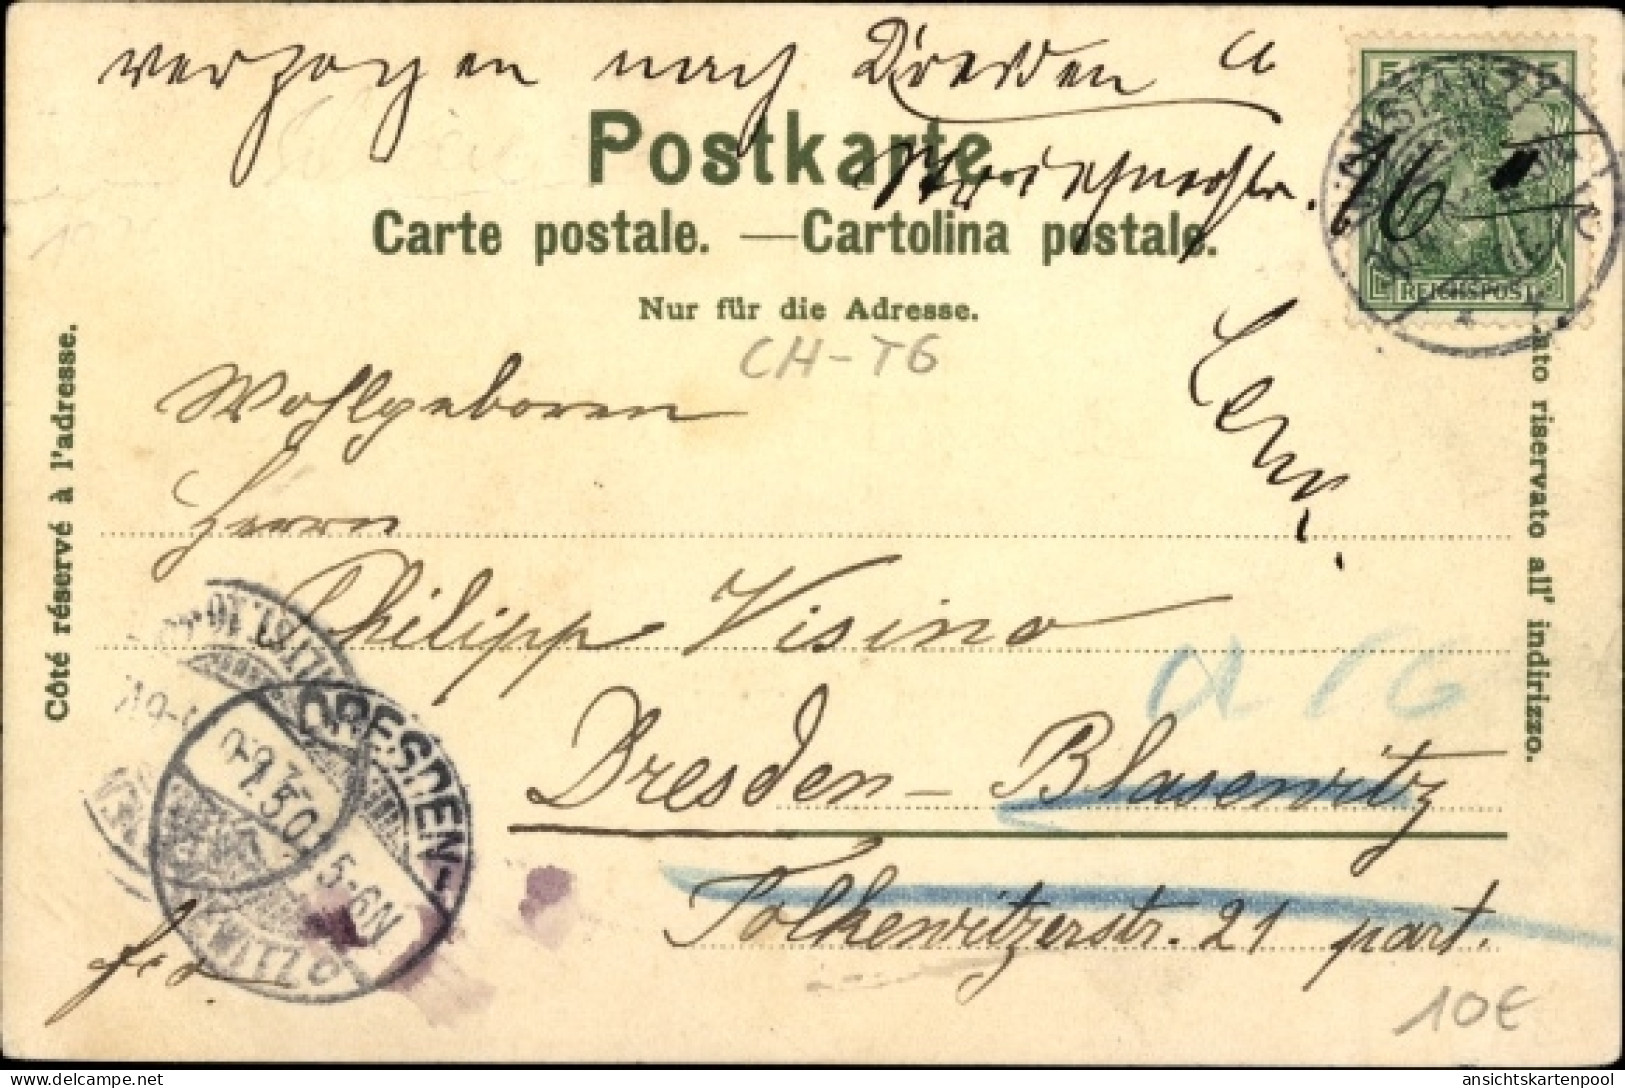 verzogen nach Dresden A
Postkarte.
16 I
Carte postale. — Cartolina postale.
Nur für die Adresse.
CH-TG
REICHSPOST
5 5
Côté réservé à l'adresse.
Lato riservato all' indirizzo.
Wohlgeboren
Herrn
Philipp Visino
A 16
Dresden - Blasewitz
Tolkewitzerstr. 21 part.
DRESDEN-
5-6N
10€
delcampe.net
ansichtskartenpool